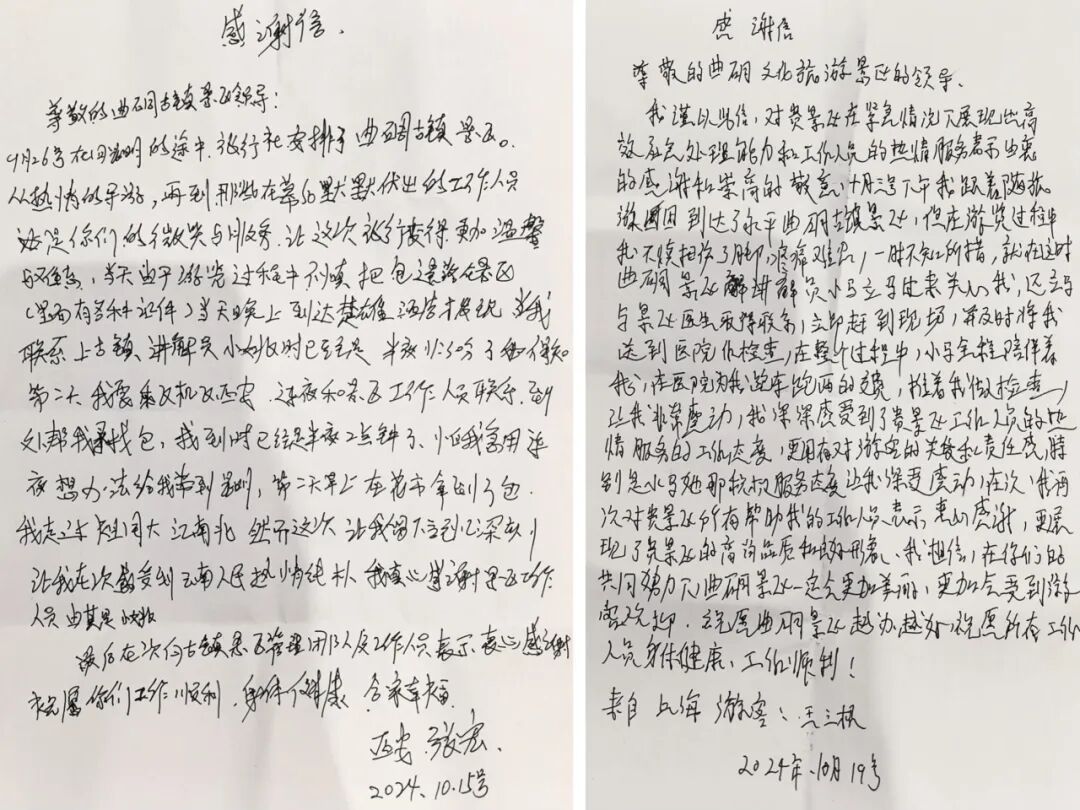 感谢信.
尊敬的曲硐古镇景区领导:
9月26号在回昆明的途中.旅行社安排了曲硐古镇景区。
从热情的导游,再到那些在幕后默默付出的工作人员
还是你们的微笑与服务.让这次旅行变得更加温馨
当天由于游览过程中不慎把包遗落在景区
(里面有各种证件)当天晚上到达楚雄酒店才发现 当我
联系上古镇讲解员小 时已经是半夜 了 得知
第二天我要乘飞机 西安.连夜和景区工作人员联系.到
帮我 找包,我到时已经是半夜2点钟了、 连
夜想办法给我带到昆明,第二天早上在花市拿到了包.
我走过 祖国大江南北 然而这次让我留下
让我在次感受到云南人民热情纯朴.我真心感谢景区工作
人员由其是
最后在次向古镇景区管理团队及工作人员表示衷心感谢
祝愿你们工作顺利.身体健康、合家幸福.
西安.张宏.
2024.10.15号
感谢信
尊敬的曲硐文化旅游景区的领导.
我谨以此信,对贵景区在紧急情况下展现出高
效应急处理能力和工作人员的热情服务表示由衷
的感谢和崇高的敬意,十月 号下午我跟着随旅
游团 到达了永平曲硐古镇景区,但在游览过程中
我不慎扭伤了脚,疼痛难忍,一时不知所措,就在这时
曲硐景区 讲解员小马立马过来关心我,还立马
与景区医生取得联系,立即赶到现场,并及时将我
送到医院做检查,在整个过程中,小马全程陪伴着
我,在医院为我 跑 的 ,推着我做检查,
让我非常感动,我深深感受到了贵景区工作人员的热
情服务的工作态度,更用有对游客的关爱和责任感,特
别是小马她那 服务态度让我深受感动,在次,我再
次对贵景区所有帮助我的工作人员表示衷心感谢,更展
现了贵景区的高尚品质和良好形象.我相信,在你们的
共同努力下曲硐景区一定会更加美丽,更加会受到游
客欢 .祝愿曲硐景区越办越好,祝愿所有工作
人员身体健康、工作顺利!
来自上海游客:王三
2024年.10月19号